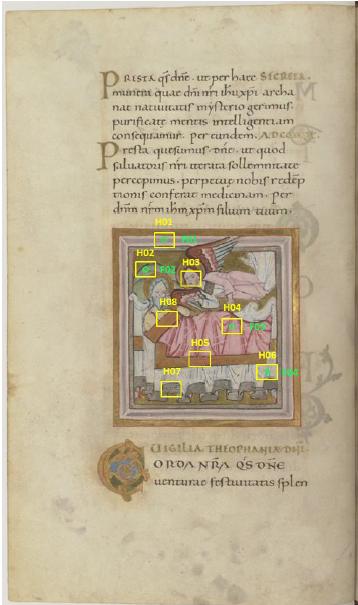 PRISTA qs dne. ut per haec SECRETA.
munera quae dni nri ihu xpi archa
nae nativitatis mysterio gerimus.
purificate mentis intellegentiam
consequamur. Per eundem. AD CO
Presta quesumus dne. ut quod
salvatoris nri iterata sollemnitate
percepimus. perpetue nobis redep
tionis conferat medicinam. Per
dnm nrm ihm xpm filium tuum.
H01
F01
H02
F02
H03
H08
H04
F03
H05
H06
F04
H07
VIGILIA THEOPHANIA DNI
CORDA NRA QS DNE
venturae festivitatis splen